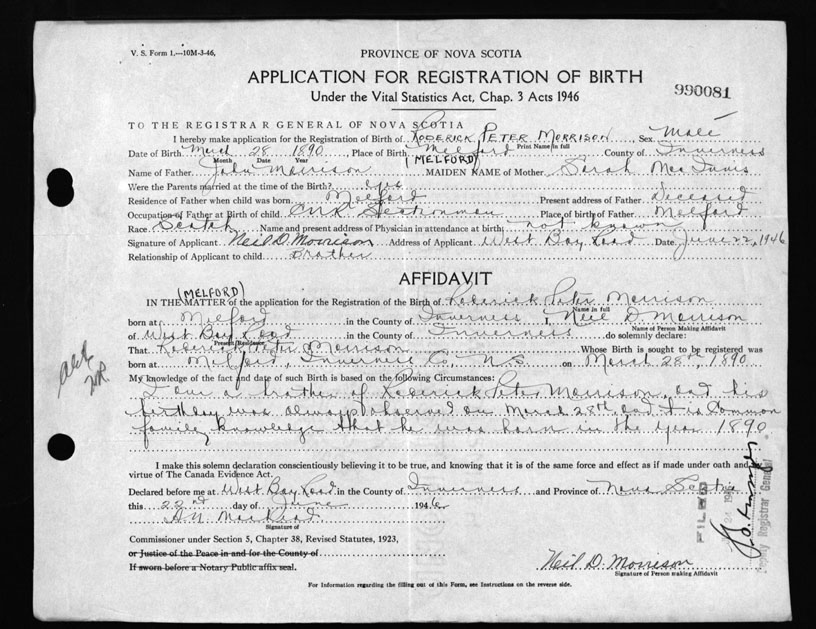 V. S. Form 1.—10M-3-46.
PROVINCE OF NOVA SCOTIA
APPLICATION FOR REGISTRATION OF BIRTH
990081
Under the Vital Statistics Act, Chap. 3 Acts 1946
TO THE REGISTRAR GENERAL OF NOVA SCOTIA
I hereby make application for the Registration of Birth of RODERICK PETER MORRISON Sex Male
Print Name in full
Date of Birth March 28 1890, Place of Birth Melford (MELFORD) County of Inverness
Month Date Year
Name of Father John Morrison MAIDEN NAME of Mother Sarah Mac Innis
Were the Parents married at the time of the Birth? yes
Residence of Father when child was born Melford Present address of Father Deceased
Occupation of Father at Birth of child CNR Sectionman Place of birth of Father Melford
Race Scotch Name and present address of Physician in attendance at birth not known
Signature of Applicant Neil D. Morrison Address of Applicant West Bay Road Date June 22, 1946
Relationship of Applicant to child Brother
AFFIDAVIT
(MELFORD)
IN THE MATTER of the application for the Registration of the Birth of Roderick Peter Morrison
Name in full
born at Melford in the County of Inverness I, Neil D. Morrison
Name of Person Making Affidavit
of West Bay Road in the County of Inverness do solemnly declare:
Present Residence
That Roderick Peter Morrison Whose Birth is sought to be registered was
born at Melford, Inverness Co, N.S. on March 28th, 1890
My knowledge of the fact and date of such Birth is based on the following Circumstances:
I am a brother of Roderick Peter Morrison, and his
birthday was always observed on March 28th and it is Common
family knowledge that he was born in the year 1890
I make this solemn declaration conscientiously believing it to be true, and knowing that it is of the same force and effect as if made under oath and by
virtue of The Canada Evidence Act.
Declared before me at West Bay Road in the County of Inverness and Province of Nova Scotia
this 22nd day of June 1946
Signature of
Commissioner under Section 5, Chapter 38, Revised Statutes, 1923,
or Justice of the Peace in and for the County of
If sworn before a Notary Public affix seal.
Neil D. Morrison
Signature of Person making Affidavit
For Information regarding the filling out of this Form, see Instructions on the reverse side.
FILED
Deputy Registrar General